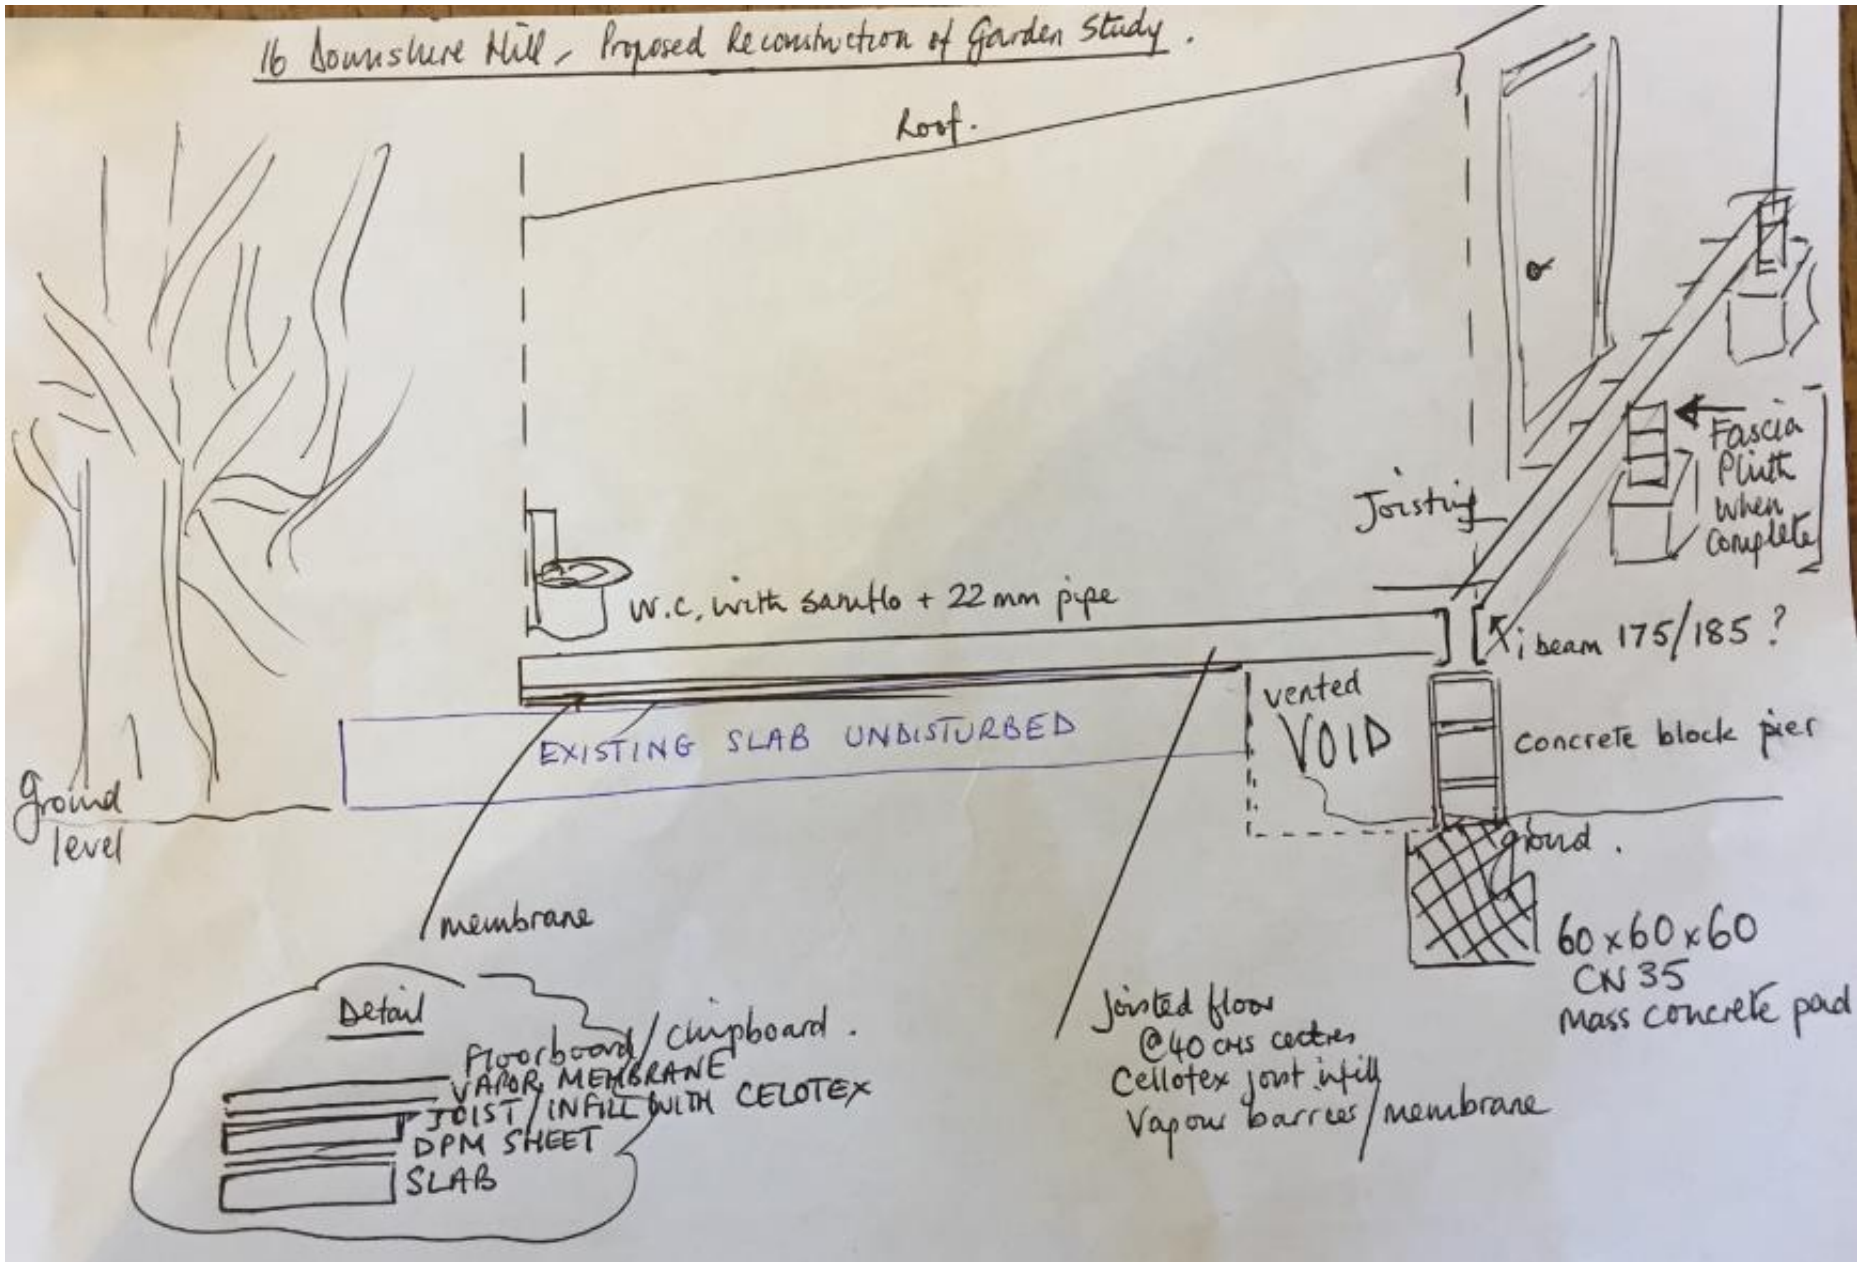 16 Downshire Hill - Proposed Reconstruction of Garden Study.
Roof.
Joisting
Fascia
Plinth
when
complete
W.C. with saniflo + 22mm pipe
i beam 175/185 ?
vented
VOID
EXISTING SLAB UNDISTURBED
concrete block pier
ground
level
ground.
membrane
60x60x60
CN 35
Mass concrete pad
Detail
Floorboard/chipboard.
VAPOR MEMBRANE
JOIST/INFILL WITH CELOTEX
DPM SHEET
SLAB
Joisted floor
@40 cms centres
Cellotex joist infill
Vapour barrees/membrane